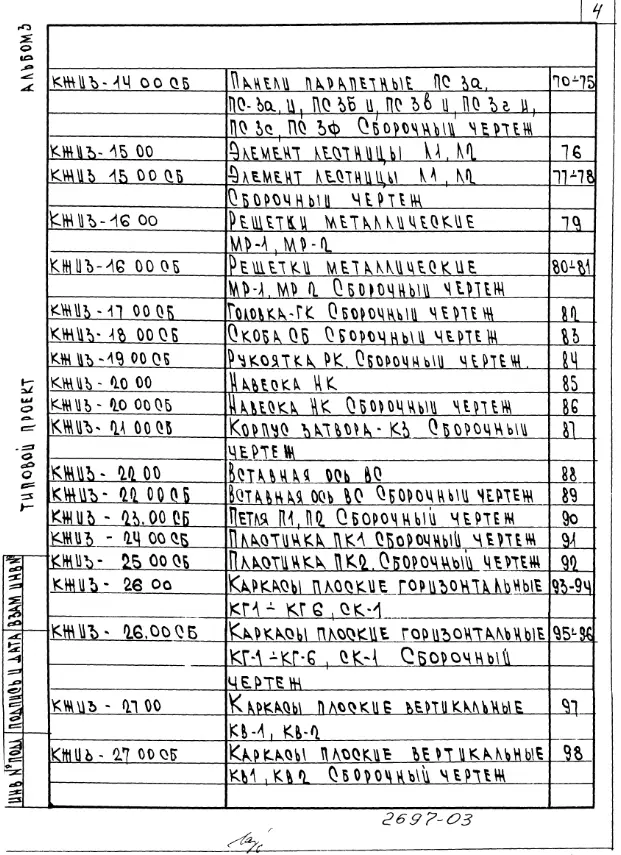 4
АЛЬБОМ 3
КЖИЗ-14 00 СБ ПАНЕЛИ ПАРАПЕТНЫЕ ПС 3а, 70÷75
ПС-3а, и, ПС 3б и, ПС 3в и, ПС 3г и,
ПС 3с, ПС 3ф СБОРОЧНЫЙ ЧЕРТЕЖ
КЖИЗ-15 00 ЭЛЕМЕНТ ЛЕСТНИЦЫ Л1, Л2 76
КЖИЗ 15 00 СБ ЭЛЕМЕНТ ЛЕСТНИЦЫ Л1, Л2 77÷78
СБОРОЧНЫЙ ЧЕРТЕЖ
КЖИЗ-16 00 РЕШЕТКИ МЕТАЛЛИЧЕСКИЕ 79
МР-1, МР-2
КЖИЗ-16 00 СБ РЕШЕТКИ МЕТАЛЛИЧЕСКИЕ 80÷81
МР-1, МР 2 СБОРОЧНЫЙ ЧЕРТЕЖ
КЖИЗ-17 00 СБ ГОЛОВКА-ГК СБОРОЧНЫЙ ЧЕРТЕЖ 82
КЖИЗ-18 00 СБ СКОБА СБ СБОРОЧНЫЙ ЧЕРТЕЖ 83
КЖИЗ-19 00 СБ РУКОЯТКА РК. СБОРОЧНЫЙ ЧЕРТЕЖ. 84
КЖИЗ-20 00 НАВЕСКА НК 85
КЖИЗ-20 00 СБ НАВЕСКА НК СБОРОЧНЫЙ ЧЕРТЕЖ 86
КЖИЗ-21 00 СБ КОРПУС ЗАТВОРА-КЗ СБОРОЧНЫЙ 87
ЧЕРТЕЖ
КЖИЗ-22 00 ВСТАВНАЯ ОСЬ ВС 88
КЖИЗ-22 00 СБ ВСТАВНАЯ ОСЬ ВС СБОРОЧНЫЙ ЧЕРТЕЖ 89
КЖИЗ-23.00 СБ ПЕТЛЯ П1, П2 СБОРОЧНЫЙ ЧЕРТЕЖ 90
КЖИЗ-24 00 СБ ПЛАСТИНКА ПК1 СБОРОЧНЫЙ ЧЕРТЕЖ 91
КЖИЗ-25 00 СБ ПЛАСТИНКА ПК2. СБОРОЧНЫЙ ЧЕРТЕЖ 92
КЖИЗ-26 00 КАРКАСЫ ПЛОСКИЕ ГОРИЗОНТАЛЬНЫЕ 93-94
КГ1÷КГ6, СК-1
КЖИЗ-26.00 СБ КАРКАСЫ ПЛОСКИЕ ГОРИЗОНТАЛЬНЫЕ 95÷96
КГ-1÷КГ-6, СК-1 СБОРОЧНЫЙ
ЧЕРТЕЖ
КЖИЗ-27 00 КАРКАСЫ ПЛОСКИЕ ВЕРТИКАЛЬНЫЕ 97
КВ-1, КВ-2
КЖИЗ-27 00 СБ КАРКАСЫ ПЛОСКИЕ ВЕРТИКАЛЬНЫЕ 98
КВ1, КВ2 СБОРОЧНЫЙ ЧЕРТЕЖ
ТИПОВОЙ ПРОЕКТ
ИНВ № ПОДЛ ПОДПИСЬ И ДАТА ВЗАМ ИНВ №
2697-03